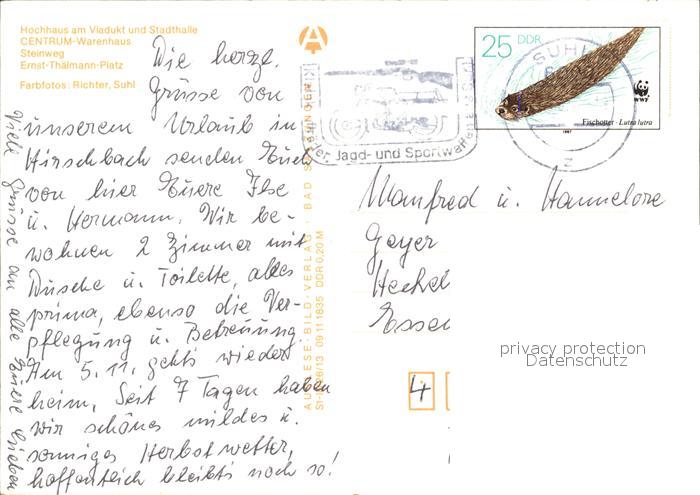 Hochhaus am Viadukt und Stadthalle
CENTRUM-Warenhaus
Steinweg
Ernst-Thälmann-Platz
Farbfotos: Richter, Suhl
Die herzl.
Grüsse von
unserem Urlaub in
Hirschbach senden Euch
von hier Euere Ilse
u. Hermann. Wir be-
wohnen 2 Zimmer mit
Dusche u. Toilette, alles
prima, ebenso die Ver-
pflegung u. Betreuung.
Am 5.11. gehts wieder
heim, Seit 7 Tagen haben
wir schönes mildes u.
sonniges Herbstwetter,
hoffentlich bleibts noch so!
Viele Grüsse an alle Euere Lieben
AUSLESE-BILD-VERLAG · BAD
09 11 1835 DDR 0,20 M
Jagd- und Sportwaffen
SUHL
25 DDR
WWF
Fischotter · Lutra lutra
1987
Manfred u. Hannelore
Geyer
Essen
4
privacy protection
Datenschutz